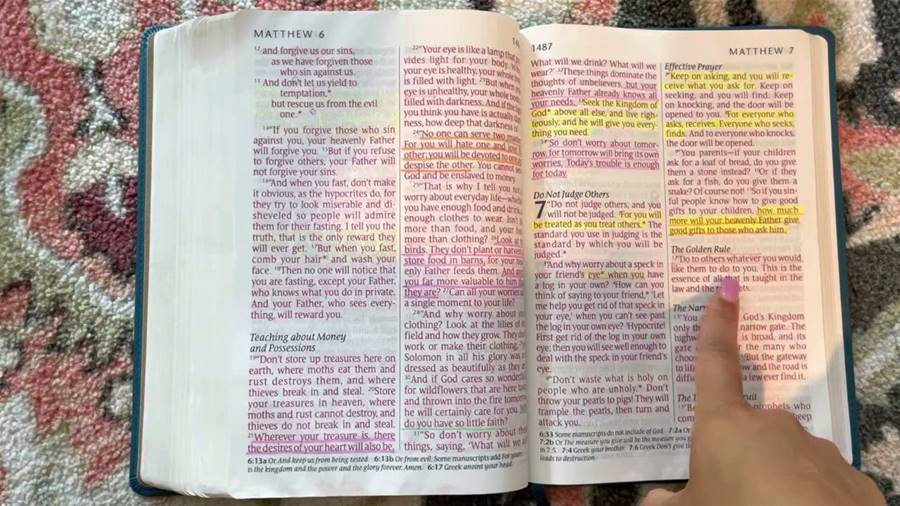 MATTHEW 6
12 and forgive us our sins,
as we have forgiven those
who sin against us.
13 And don't let us yield to
temptation,*
but rescue us from the evil
one.*
14 "If you forgive those who sin
against you, your heavenly Father
will forgive you. 15 But if you refuse
to forgive others, your Father will
not forgive your sins.
16 "And when you fast, don't make
it obvious, as the hypocrites do, for
they try to look miserable and di-
sheveled so people will admire
them for their fasting. I tell you the
truth, that is the only reward they
will ever get. 17 But when you fast,
comb your hair* and wash your
face. 18 Then no one will notice that
you are fasting, except your Father,
who knows what you do in private.
And your Father, who sees every-
thing, will reward you.
Teaching about Money
and Possessions
19 "Don't store up treasures here on
earth, where moths eat them and
rust destroys them, and where
thieves break in and steal. 20 Store
your treasures in heaven, where
moths and rust cannot destroy, and
thieves do not break in and steal.
21 Wherever your treasure is, there
the desires of your heart will also be.
22 "Your eye is like a lamp that
vides light for your body. W
your eye is healthy, your whole
is filled with light. 23 But when
eye is unhealthy, your whole
filled with darkness. And if the
you think you have is actually da
ness, how deep that darkness
24 "No one can serve two
For you will hate one and
other; you will be devoted to one
despise the other. You cannot
God and be enslaved to money.
25 "That is why I tell you
worry about everyday life—
you have enough food and
enough clothes to wear. Isn't
more than food, and your
more than clothing? 26 Look at
birds. They don't plant or harvest
store food in barns, for your
enly Father feeds them. And
you far more valuable to him
they are? 27 Can all your worries
a single moment to your life?
28 "And why worry about
clothing? Look at the lilies of
field and how they grow. They don
work or make their clothing, 29
Solomon in all his glory was
dressed as beautifully as they
30 And if God cares so wonderful
for wildflowers that are here
and thrown into the fire tomorro
he will certainly care for you.
do you have so little faith?
31 "So don't worry about the
things, saying, 'What will we
6:13a Or And keep us from being tested. 6:13b Or from evil. Some manuscripts add For yours
is the kingdom and the power and the glory forever. Amen. 6:17 Greek anoint your head.
1487
MATTHEW 7
What will we drink? What will we
wear?' 32 These things dominate the
thoughts of unbelievers, but your
heavenly Father already knows all
your needs. 33 Seek the Kingdom of
God* above all else, and live righ-
teously, and he will give you every-
thing you need.
34 "So don't worry about tomor-
row, for tomorrow will bring its own
worries. Today's trouble is enough
for today.
Do Not Judge Others
7 "Do not judge others, and you
will not be judged. 2 For you will
be treated as you treat others.* The
standard you use in judging is the
standard by which you will be
judged.*
3 "And why worry about a speck in
your friend's eye* when you have
a log in your own? 4 How can you
think of saying to your friend,* 'Let
me help you get rid of that speck in
your eye,' when you can't see past
the log in your own eye? 5 Hypocrite!
First get rid of the log in your own
eye; then you will see well enough to
deal with the speck in your friend's
eye.
6 "Don't waste what is holy on
people who are unholy.* Don't
throw your pearls to pigs! They will
trample the pearls, then turn and
attack you.
6:33 Some manuscripts do not include of God. 7:2a Or
7:2b Or The measure you give will be the measure you g
in 7:5. 7:4 Greek your brother. 7:6 Greek Don't give
leads to destruction.
Effective Prayer
7 "Keep on asking, and you will re-
ceive what you ask for. Keep on
seeking, and you will find. Keep
on knocking, and the door will be
opened to you. 8 For everyone who
asks, receives. Everyone who seeks,
finds. And to everyone who knocks,
the door will be opened.
9 "You parents—if your children
ask for a loaf of bread, do you give
them a stone instead? 10 Or if they
ask for a fish, do you give them a
snake? Of course not! 11 So if you sin-
ful people know how to give good
gifts to your children, how much
more will your heavenly Father give
good gifts to those who ask him.
The Golden Rule
12 "Do to others whatever you would
like them to do to you. This is the
essence of all that is taught in the
law and the ets.
The Nar
13 "You God's Kingdom
only th narrow gate. The
highw is broad, and its
gate the many who
But the gateway
to life w and the road is
diffic a few ever find it.
The T ruit
15 "Be prophets who
keep